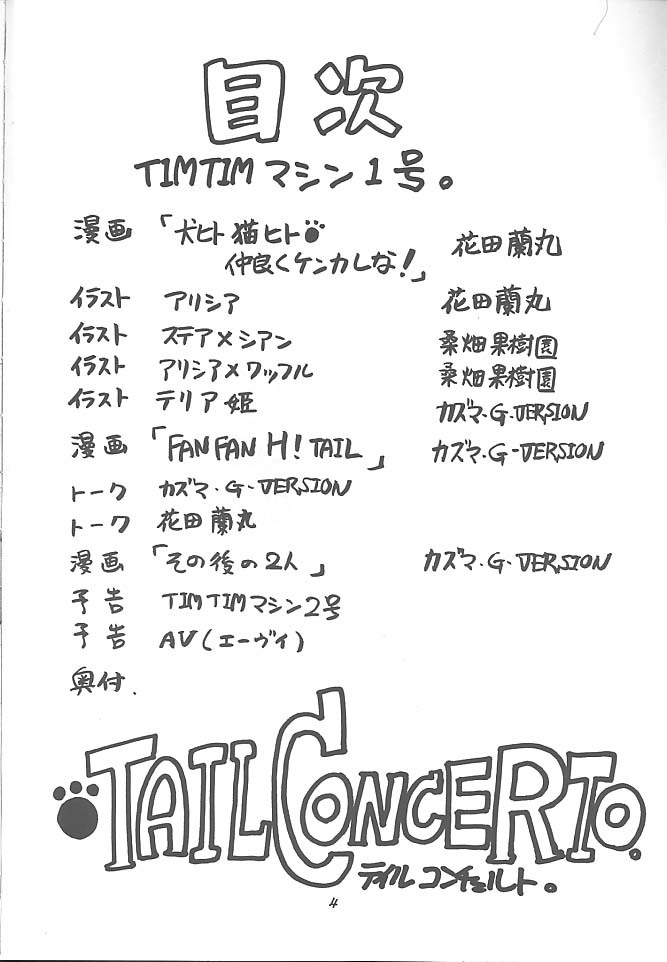 目次
TIMTIMマシン1号。
漫画 「犬ヒト猫ヒト 花田蘭丸
仲良くケンカしな!」
イラスト アリシア 花田蘭丸
イラスト ステア×シアン 桑畑果樹園
イラスト アリシア×ワッフル 桑畑果樹園
イラスト テリア姫 カズマ・G・VERSION
漫画 「FANFAN H! TAIL」 カズマ・G-VERSION
トーク カズマ・G-VERSION
トーク 花田蘭丸
漫画 「その後の2人」 カズマ・G・VERSION
予告 TIMTIMマシン2号
予告 AV(エーヴィ)
奥付.
TAIL CONCERTO.
テイルコンチェルト。
4